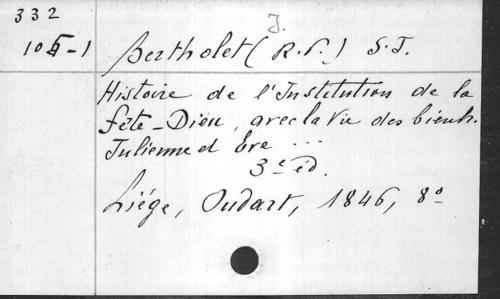 332
J.
105-1
Bertholet (R.P.) S.J.
Histoire de l'Institution de la
fête-Dieu, avec la Vie des bienh.
Julienne et Eve ...
3e éd.
Liége, Oudart, 1846, 8°